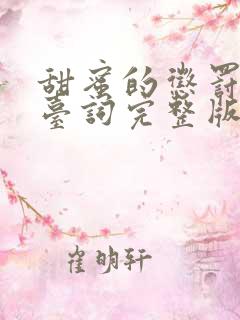 甜蜜的懲罰
臺詞完整版
崔明轩